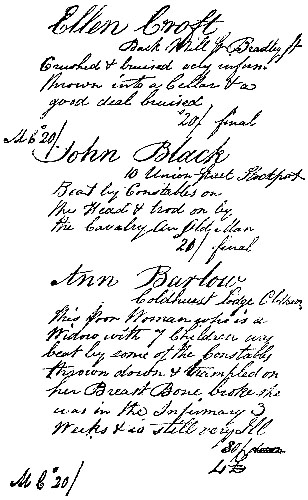 Ellen Croft
Back Mill St Bradley St
Crushed & bruised very infirm
thrown into a Cellar & a
good deal bruised
20/ final
M C 20/
John Black
10 Union Street Stockport
Beat by Constables on
the Head & trod on by
the Cavalry an Old Man
20/ final
Ann Barlow
Coldhurst Lodge Oldham
this poor Woman who is a
Widow with 7 Children was
beat by some of the Constables
thrown down & trampled on
her Breast Bone broke she
was in the Infirmary 3
Weeks & is still very Ill
80/
M C 20/